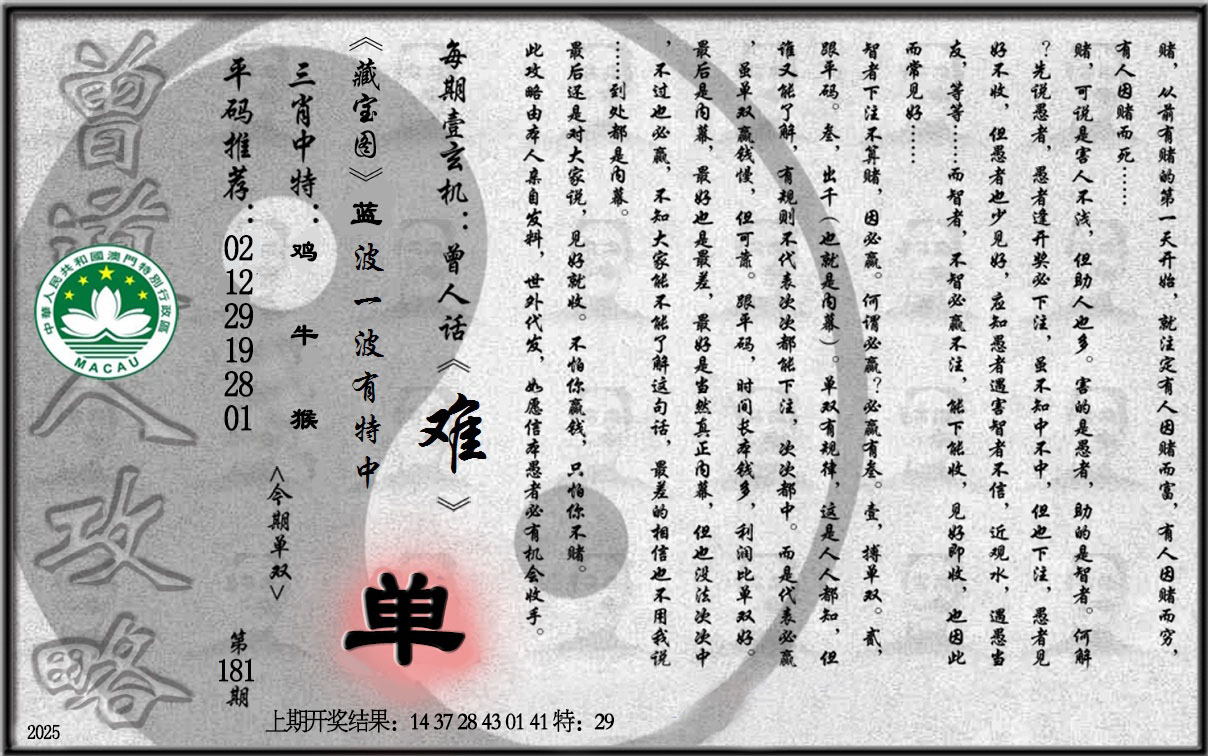 赌，从前有赌的第一天开始，就注定有人因赌而富，有人因赌而穷，
有人因赌而死……
赌，可说是害人不浅，但助人也多。害的是愚者，助的是智者。何解
？先说愚者，愚者逢开奖必下注，虽不知中不中，但也下注，愚者见
好不收，但愚者也少见好，应知愚者遇害智者不信，近观水，遇愚当
友，等等……而智者，不智必赢不注，能下能收，见好即收，也因此
而常见好……
智者下注不算赌，因必赢。何谓必赢？必赢有叁。壹，搏单双。贰，
跟平码。叁，出千（也就是内幕）。单双有规律，这是人人都知，但
谁又能了解，有规则不代表次次都能下注，次次都中。而是代表必赢
，虽单双赢钱慢，但可靠。跟平码，时间长本钱多，利润比单双好。
最后是内幕，最好也是最差，最好是当然真正内幕，但也没法次次中
，不过也必赢，不知大家能不能了解这句话，最差的相信也不用我说
……到处都是内幕。
最后还是对大家说，见好就收。不怕你赢钱，只怕你不赌。
此攻略由本人亲自发料，世外代发，如愿信本愚者必有机会收手。
每期壹玄机：曾人话《难》
《藏宝图》蓝波一波有特中
三肖中特：鸡 牛 猴
<今期单双>
单
平码推荐：02 12 29 19 28 01
第181期
曾道人攻略
中華人民共和國澳門特別行政區
MACAU
上期开奖结果：14 37 28 43 01 41 特：29
2025